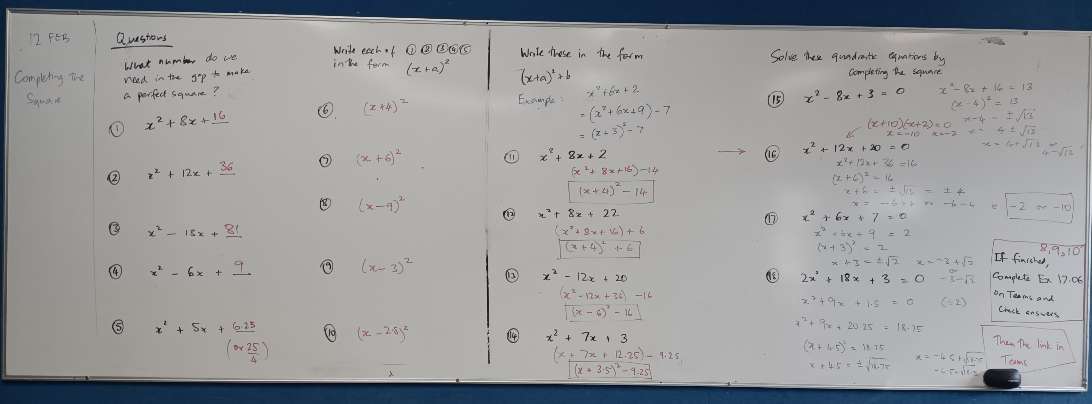 12 FEB
Completing The
Square
Questions
What number do we
need in the gap to make
a perfect square?
① x² + 8x + 16
② x² + 12x + 36
③ x² − 18x + 81
④ x² − 6x + 9
⑤ x² + 5x + 6.25
(or 25/4)
Write each of ① ② ③ ④ ⑤
in the form (x+a)²
⑥ (x+4)²
⑦ (x+6)²
⑧ (x−9)²
⑨ (x−3)²
⑩ (x−2.5)²
Write these in the form
(x+a)²+b
Example: x²+6x+2
= (x²+6x+9) − 7
= (x+3)² − 7
⑪ x² + 8x + 2
(x² + 8x+16) −14
(x+4)² − 14
⑫ x² + 8x + 22
(x² + 8x + 16) + 6
(x+4)² + 6
⑬ x² − 12x + 20
(x² −12x + 36) −16
(x−6)² − 16
⑭ x² + 7x + 3
(x + 7x + 12.25) − 9.25
(x + 3.5)² − 9.25
Solve these quadratic equations by
completing the square
⑮ x² − 8x + 3 = 0
x² − 8x + 16 = 13
(x − 4)² = 13
x−4 = ±√13
x = 4 ± √13
x = 4+√13 or
4−√13
(x+10)(x+2)=0
x=−10 x=−2
→ ⑯ x² + 12x + 20 = 0
x² + 12x + 36 = 16
(x+6)² = 16
x+6 = ±√16 = ± 4
x = −6+4 or −6−4
−2 or −10
⑰ x² + 6x + 7 = 0
x² + 6x + 9 = 2
(x + 3)² = 2
x + 3 = ±√2 x = −3+√2
or
−3−√2
⑱ 2x² + 18x + 3 = 0
x² + 9x + 1.5 = 0 (÷2)
x² + 9x + 20.25 = 18.75
(x + 4.5)² = 18.75
x + 4.5 = ±√18.75
x = −4.5+√18.75
−4.5−√18.75
8,9,10
If finished,
Complete Ex 17.06
on Teams and
Check answers
Then the link in
Teams